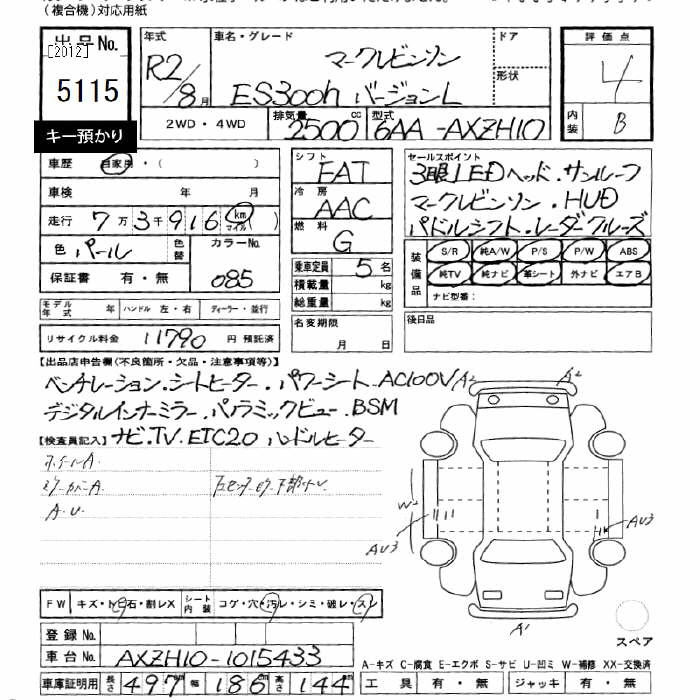 (複合機)対応用紙
出品No.
[2012]
5115
キー預かり
年式 R2/8月
車名・グレード マークレビンソン
ES300h バージョンL
ドア
形状
評価点 4
内装 B
2WD・4WD
排気量 2500cc
型式 6AA-AXZH10
車歴 自家用・( )
車検 年 月
走行 7万3千916 km マイル )
色 パール
色替
カラーNo. 085
保証書 有・無
シフト FAT
冷房 AAC
燃料 G
乗車定員 5名
積載量 kg
総重量 kg
セールスポイント
3眼LEDヘッド.サンルーフ
マークレビンソン.HUD
パドルシフト.レーダクルーズ
装備品 S/R 純A/W P/S P/W ABS
純TV 純ナビ 革シート 外ナビ エアB
ナビ型番:
モデル年式 年 ハンドル 左・右 ディーラー・並行
リサイクル料金 11790 円 預託済
名変期限
月 日
後日品
【出品店申告欄(不良箇所・欠品・注意事項等)】
ベンチレーション.シートヒーター.パワーシート.AC100V
デジタルインナーミラー.パノラミックビュー.BSM
【検査員記入】 ナビ.TV.ETC2.0 ハンドルヒーター
A.U.
A2 A2
W2
AU3
AU3
A1
FW キズ・トビ石・割レX シート内装 コゲ・穴・汚レ・シミ・破レ・スレ
登録No.
車台No. AXZH10-1015433
車庫証明用 長さ 497 幅 186 高さ 144
スペア
A-キズ C-腐食 E-エクボ S-サビ U-凹ミ W-補修 XX-交換済
工具 有・無 ジャッキ 有・無